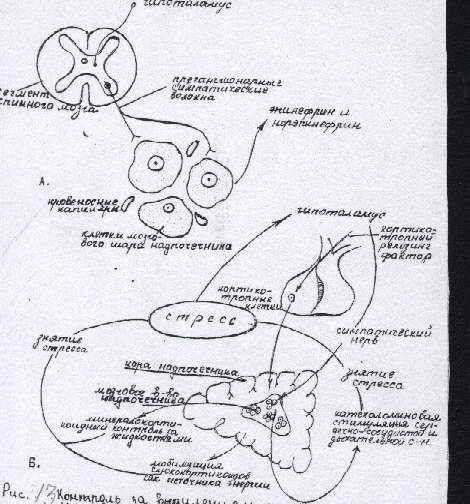 гипоталамус
сегмент
спинного мозга
преганглионарные
симпатические
волокна
эпинефрин и
норэпинефрин
А.
кровеносные
капилляры
клетки мозго-
вого шара надпочечника
гипоталамус
кортико-
тропный
рилизинг
фактор
кортико-
тропные
клетки
стресс
симпатический
нерв
снятие
стресса
кора надпочечника
снятие
стресса
мозговое в-во
надпочечника
минералокорти-
коидный контроль за
жидкостями
катехоламиновая
стимуляция сер-
дечно-сосудистой и
дыхательной с-м.
мобилизация
глюкокортикоидов
как источника энергии
Б.
Рис. 13. Контроль за